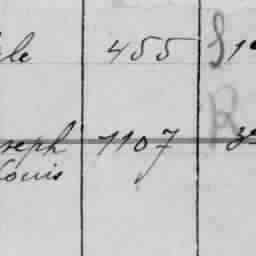 le 455 S 1
seph 1107 R 3
Louis